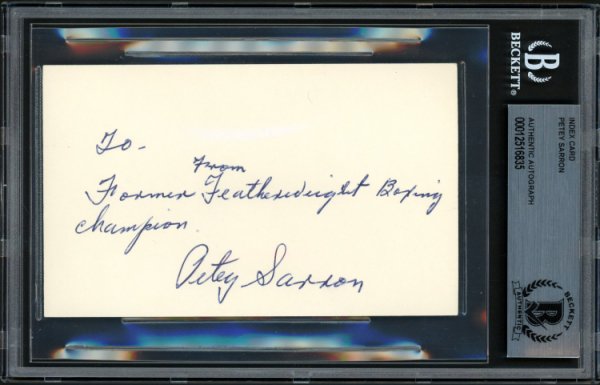 To -
From
Former Featherweight Boxing
champion.
Petey Sarron
BECKETT®
B
INDEX CARD
PETEY SARRON
AUTHENTIC AUTOGRAPH
00012516835
BECKETT
AUTHENTIC
B